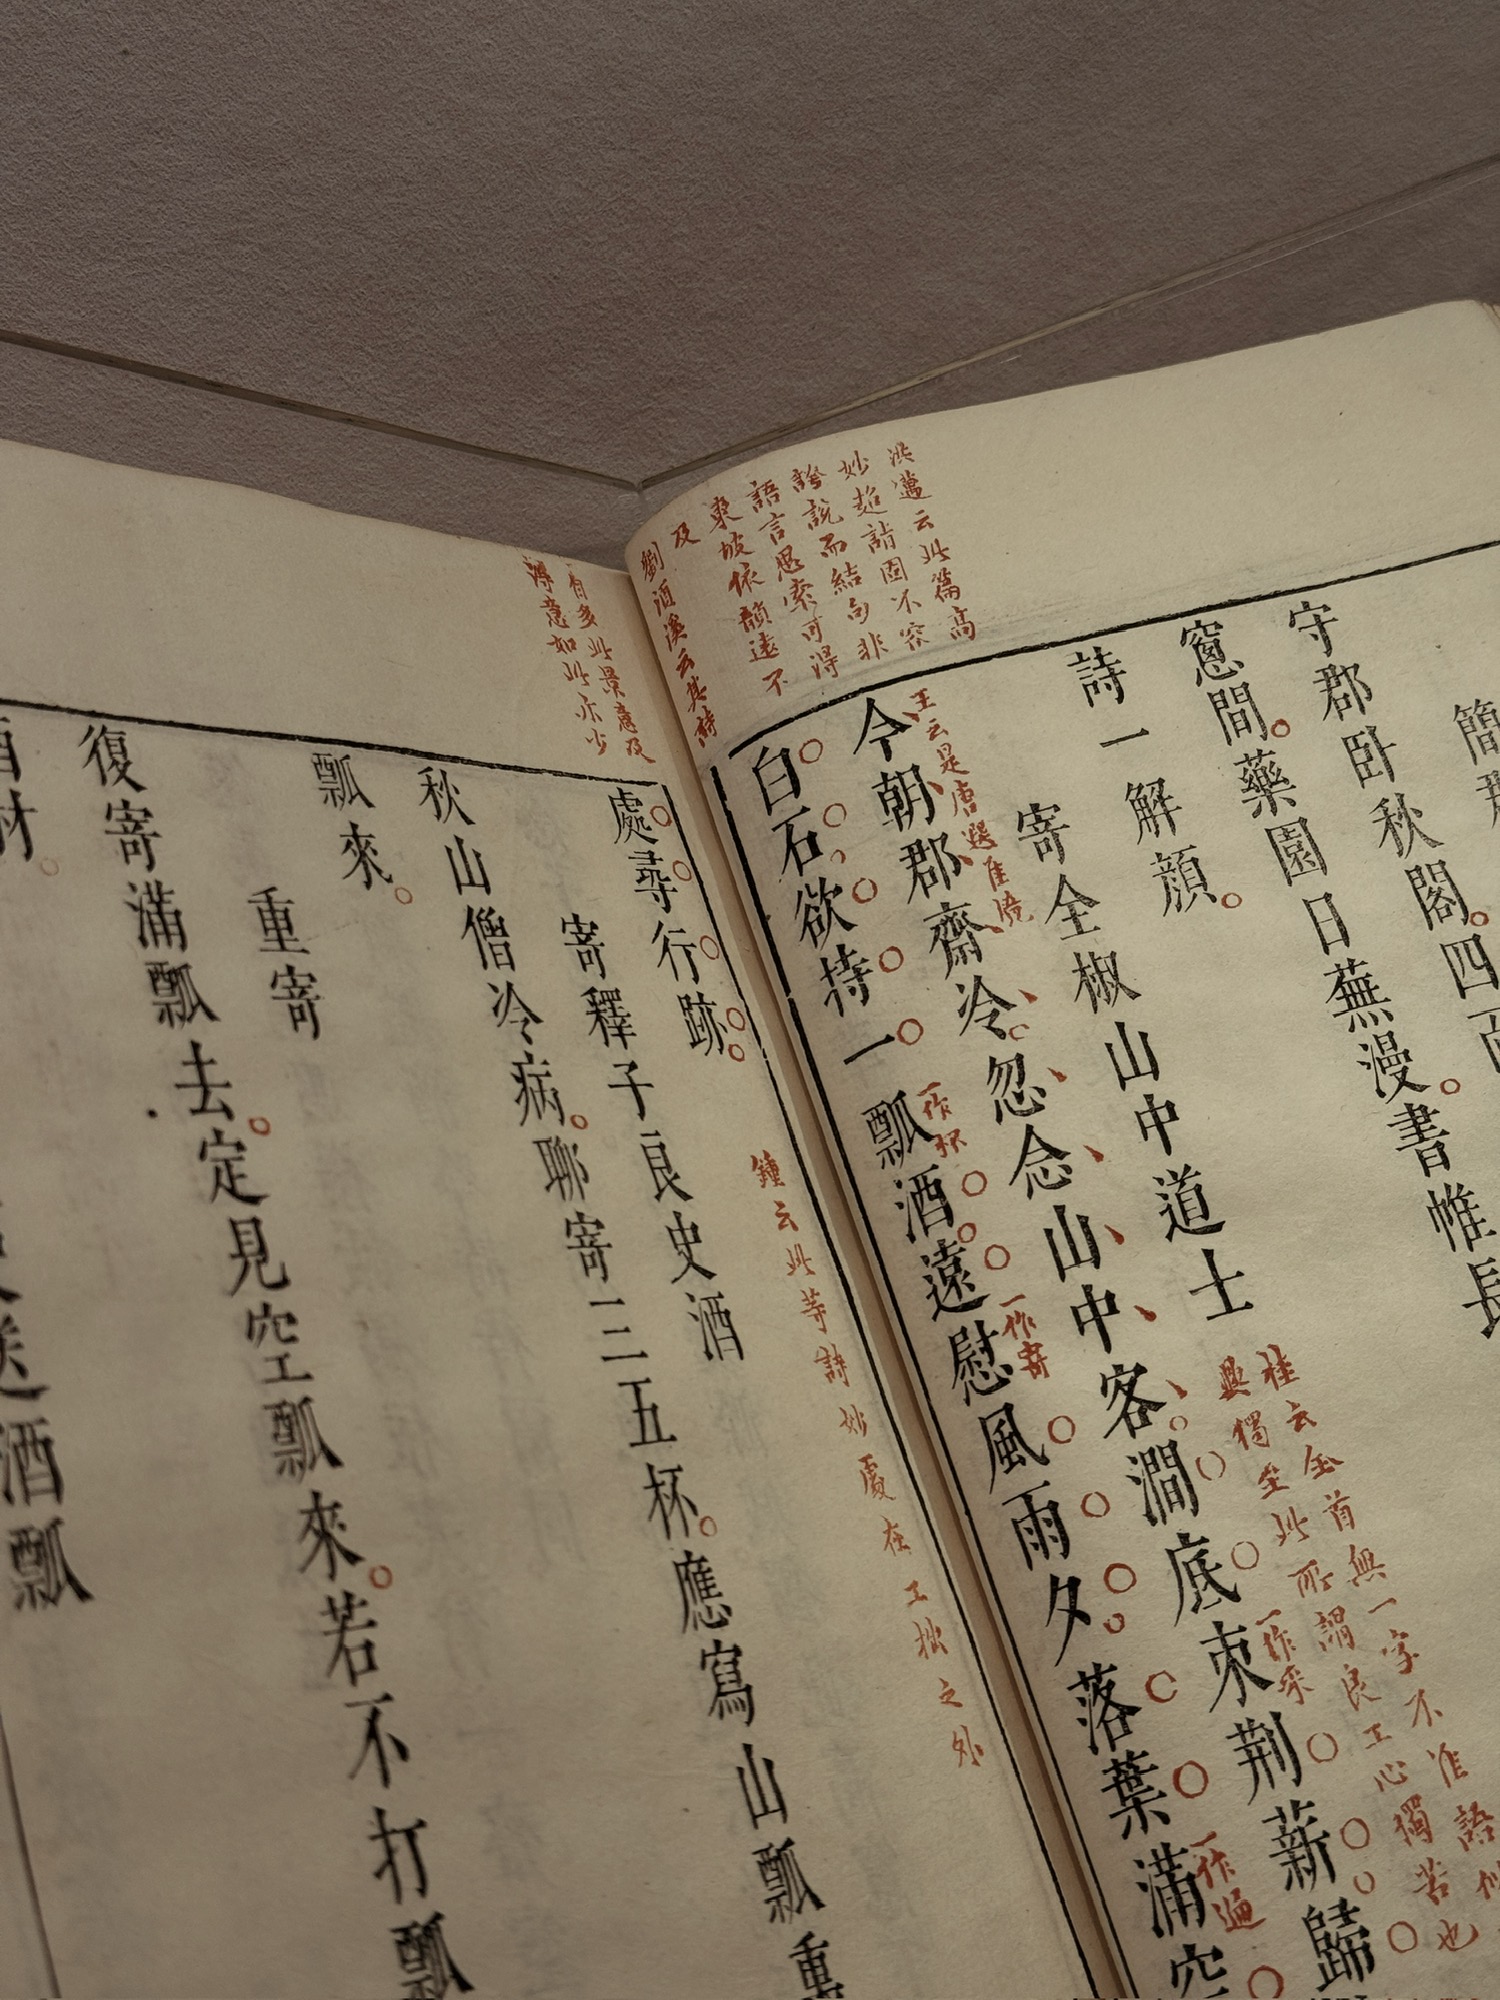 守郡卧秋閣。四
窻間。藥園日蕪漫。書帷長
詩一解顏。
寄全椒山中道士
桂云全首無一字不佳語
興獨坐此所謂良工心獨苦也
今朝郡齋冷。忽念山中客。澗底朿荆薪歸
王云是唐選佳境
一作采
白石欲持一瓢酒。遠慰風雨夕。落葉滿空
一作杯
一作寄
一作遍
洪邁云此篇高
妙超詣固不容
誇說而結句非
語言思索可得
東坡依韻遠不
及
劉須溪云其詩
有多此景意及
得意如此亦少
處尋行跡。
鍾云此等詩妙處在工拙之外
寄釋子良史酒
秋山僧冷病。聊寄三五杯。應寫山瓢
瓢來。
重寄
復寄滿瓢去。定見空瓢來。若不打瓢
送酒瓢